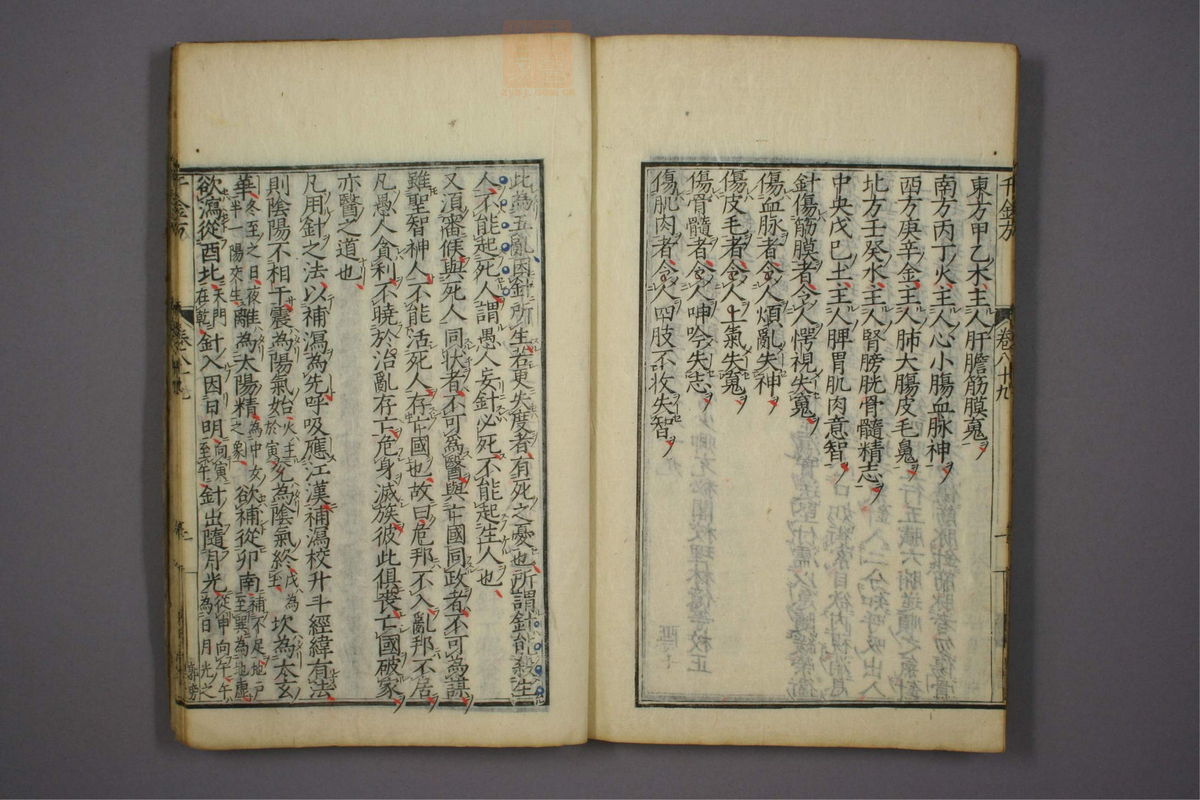 東方甲乙木主人肝膽筋膜䰟
南方丙丁火主人心小腸血脉神
西方庚辛金主人肺大腸皮毛䰟
北方壬癸水主人腎膀胱骨髓精志
中央戊己土主人脾胃肌肉意智
針傷筋膜者令人愕視失䰟
傷血脉者令人煩亂失神
傷皮毛者令人上氣失䰟
傷骨髓者令人呻吟失志
傷肌肉者令人四肢不收失智
此為五亂因針所生若更失度者有死之憂也所謂針能殺生
人不能起死人謂愚人妄針必死不能起生人也
又須審候與死人同狀者不可為醫與亡國同政者不可為謀
雖聖智神人不能活死人存亡國也故曰危邦不入亂邦不居
凡愚人貪利不曉於治亂存亡危身滅族彼此俱喪亡國破家
亦醫之道也
凡用針之法以補瀉為先呼吸應江漢補瀉校升斗經緯有法
則陰陽不相干震為陽氣始火生於寅兌為陰氣終戊為土坎為太玄
華冬至之日夜半一陽爻生離為太陽精為中女之象欲補從卯南補不足地戶至巽為地虛
欲瀉從酉北天門在乾針入因日明向寅至午針出隨月光從申向午午為日月光之
千金方
卷八十九
千金方
卷八十九